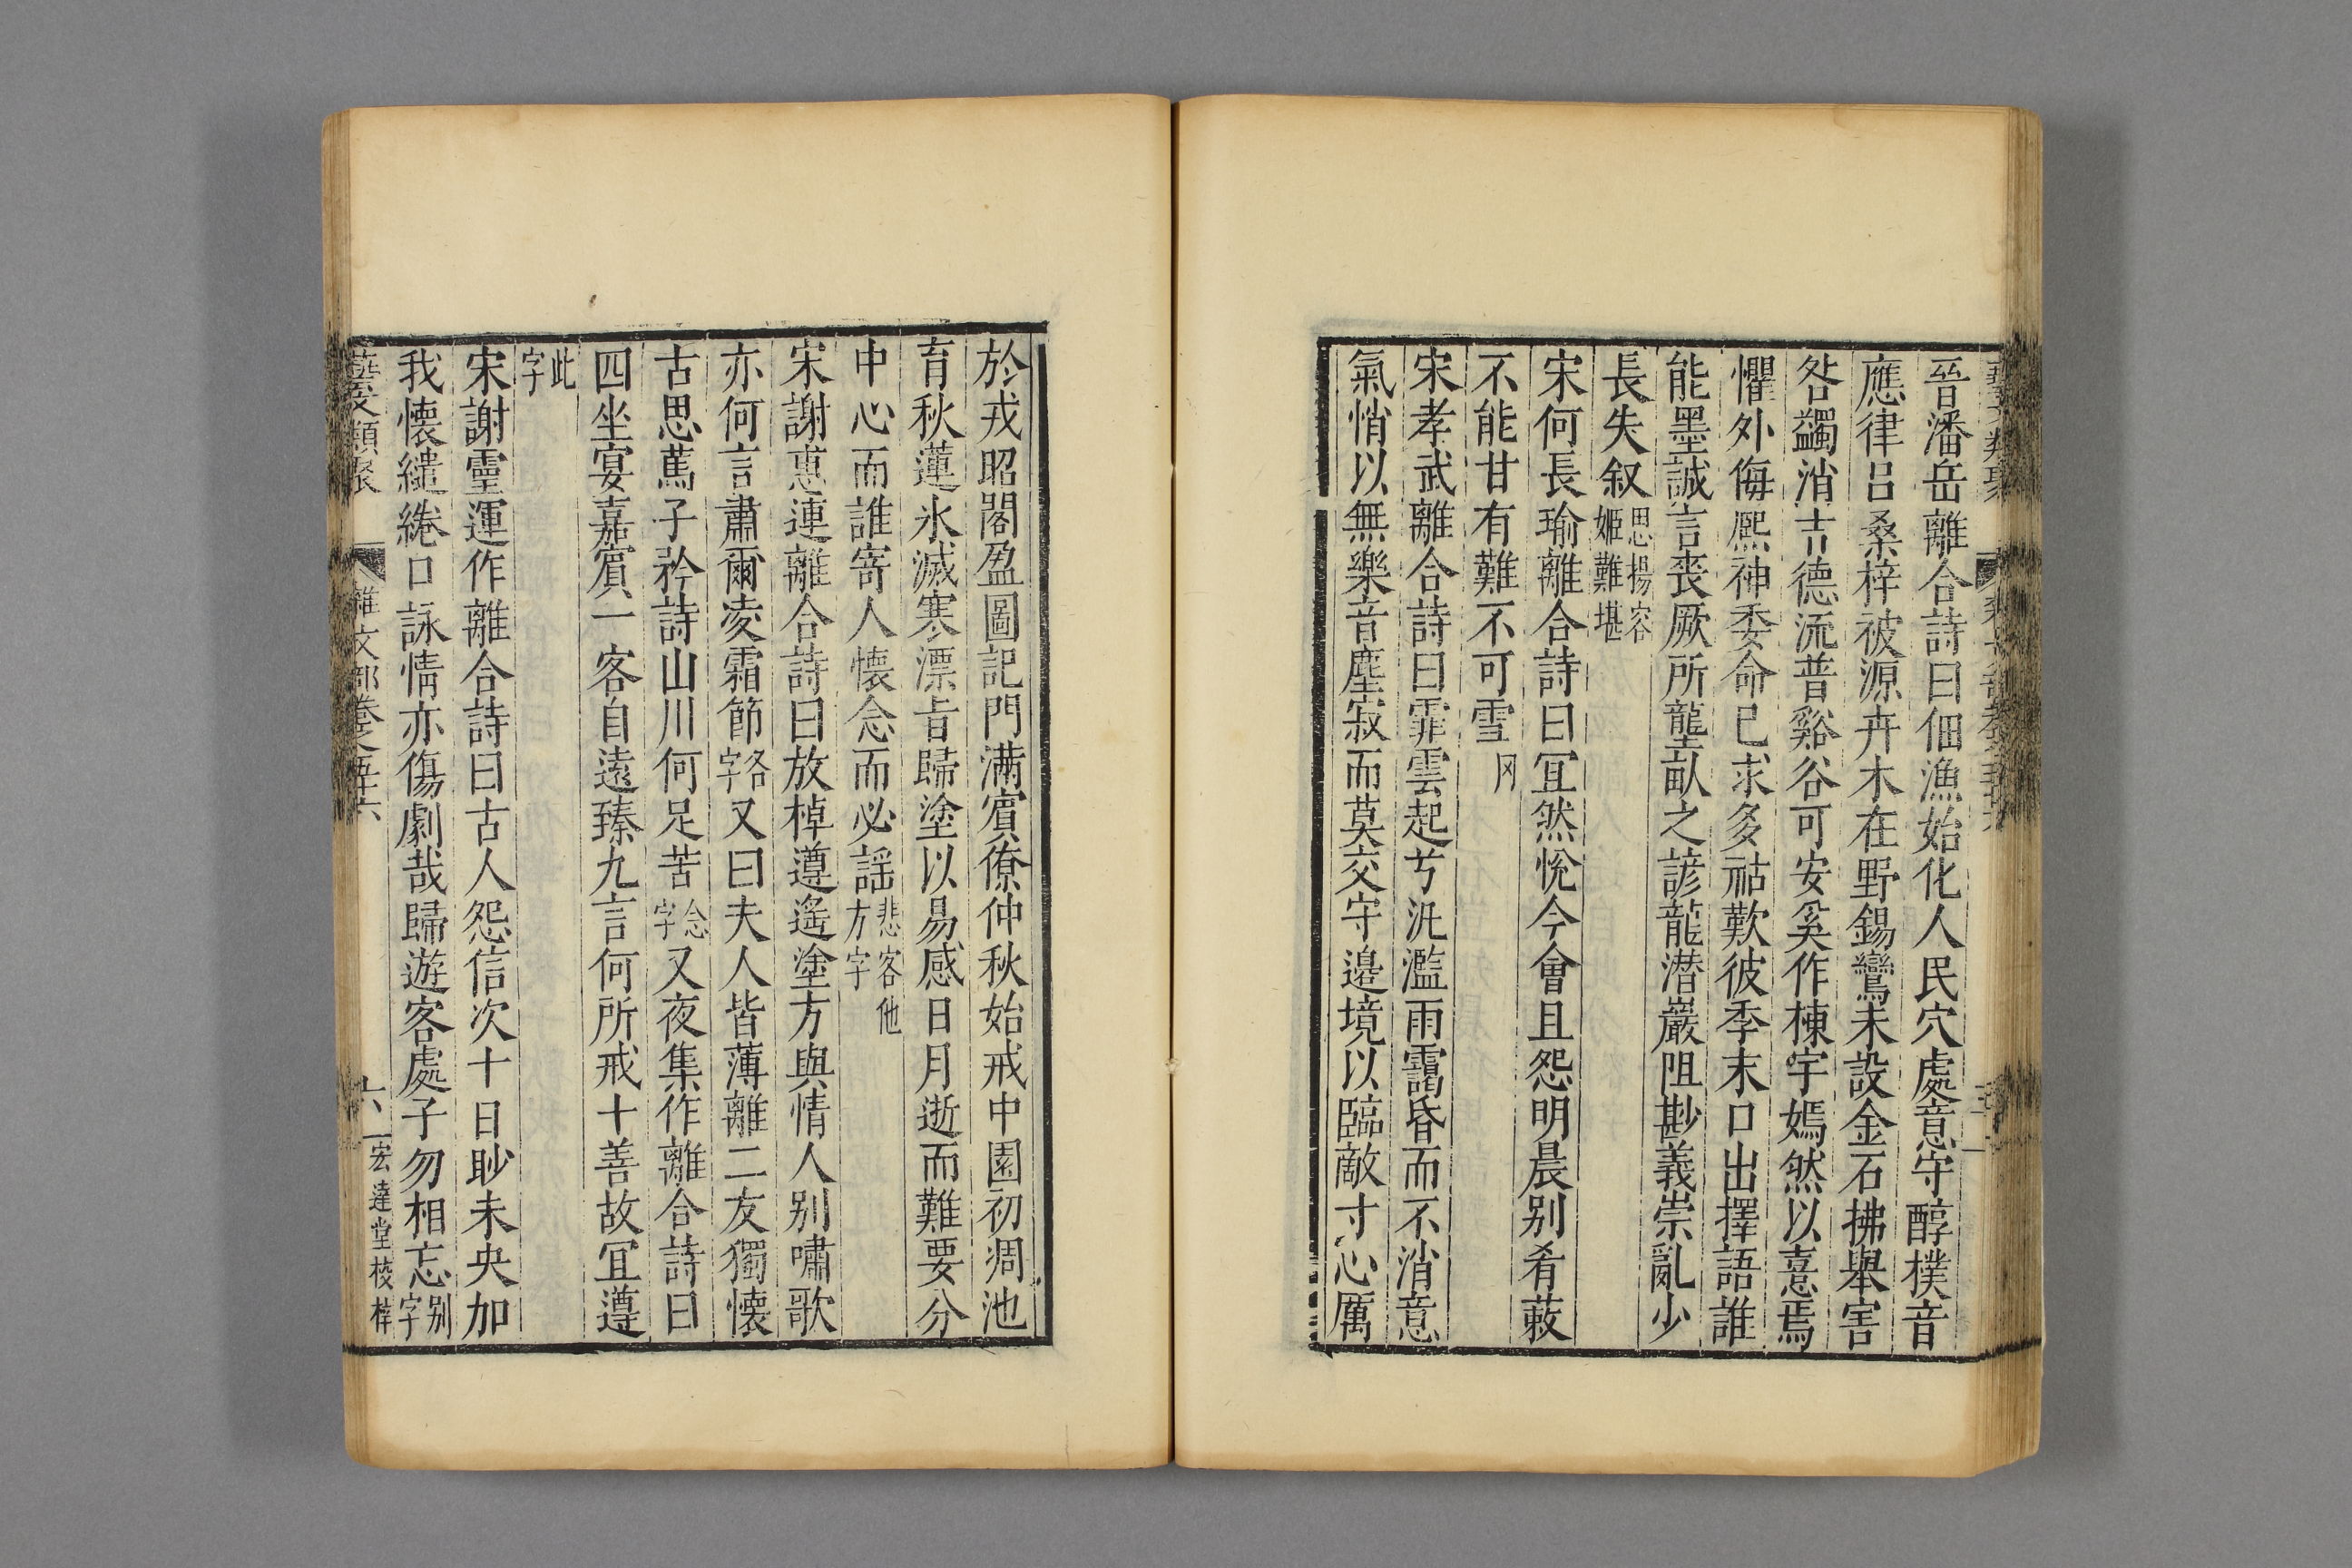 晉潘岳離合詩曰佃漁始化人民穴處意守醇樸音
應律呂桑梓被源卉木在野錫鸞未設金石拂舉害
咎蠲消吉德流普谿谷可安奚作棟宇嫣然以憙焉
懼外侮熈神委命已求多祜歎彼季末口出擇語誰
能墨誠言喪厥所壟畝之諺龍潜巖阻尠義崇亂少
長失叙思楊容姬難堪
宋何長瑜離合詩曰冝然悅今會且怨明晨别肴蔌
不能甘有難不可雪
宋孝武離合詩曰霏雲起兮汎濫雨靄昏而不消意
氣悄以無樂音塵寂而莫交守邊境以臨敵寸心厲
於戎昭閣盈圖記門滿賓僚仲秋始戒中園初凋池
育秋蓮水滅寒漂旨歸塗以易感日月逝而難要分
中心而誰寄人懐念而必謡悲客他方字
宋謝惠連離合詩曰放棹遵遙塗方與情人别嘯歌
亦何言肅爾凌霜節各字又曰夫人皆薄離二友獨懐
古思蔫子矜詩山川何足苦念字又夜集作離合詩曰
四坐宴嘉賓一客自遠臻九言何所戒十善故冝遵
此字
宋謝靈運作離合詩曰古人怨信次十日眇未央加
我懐繾綣口詠情亦傷劇哉歸遊客處子勿相忘别字
雜文部卷之五十六
六
宏達堂校梓